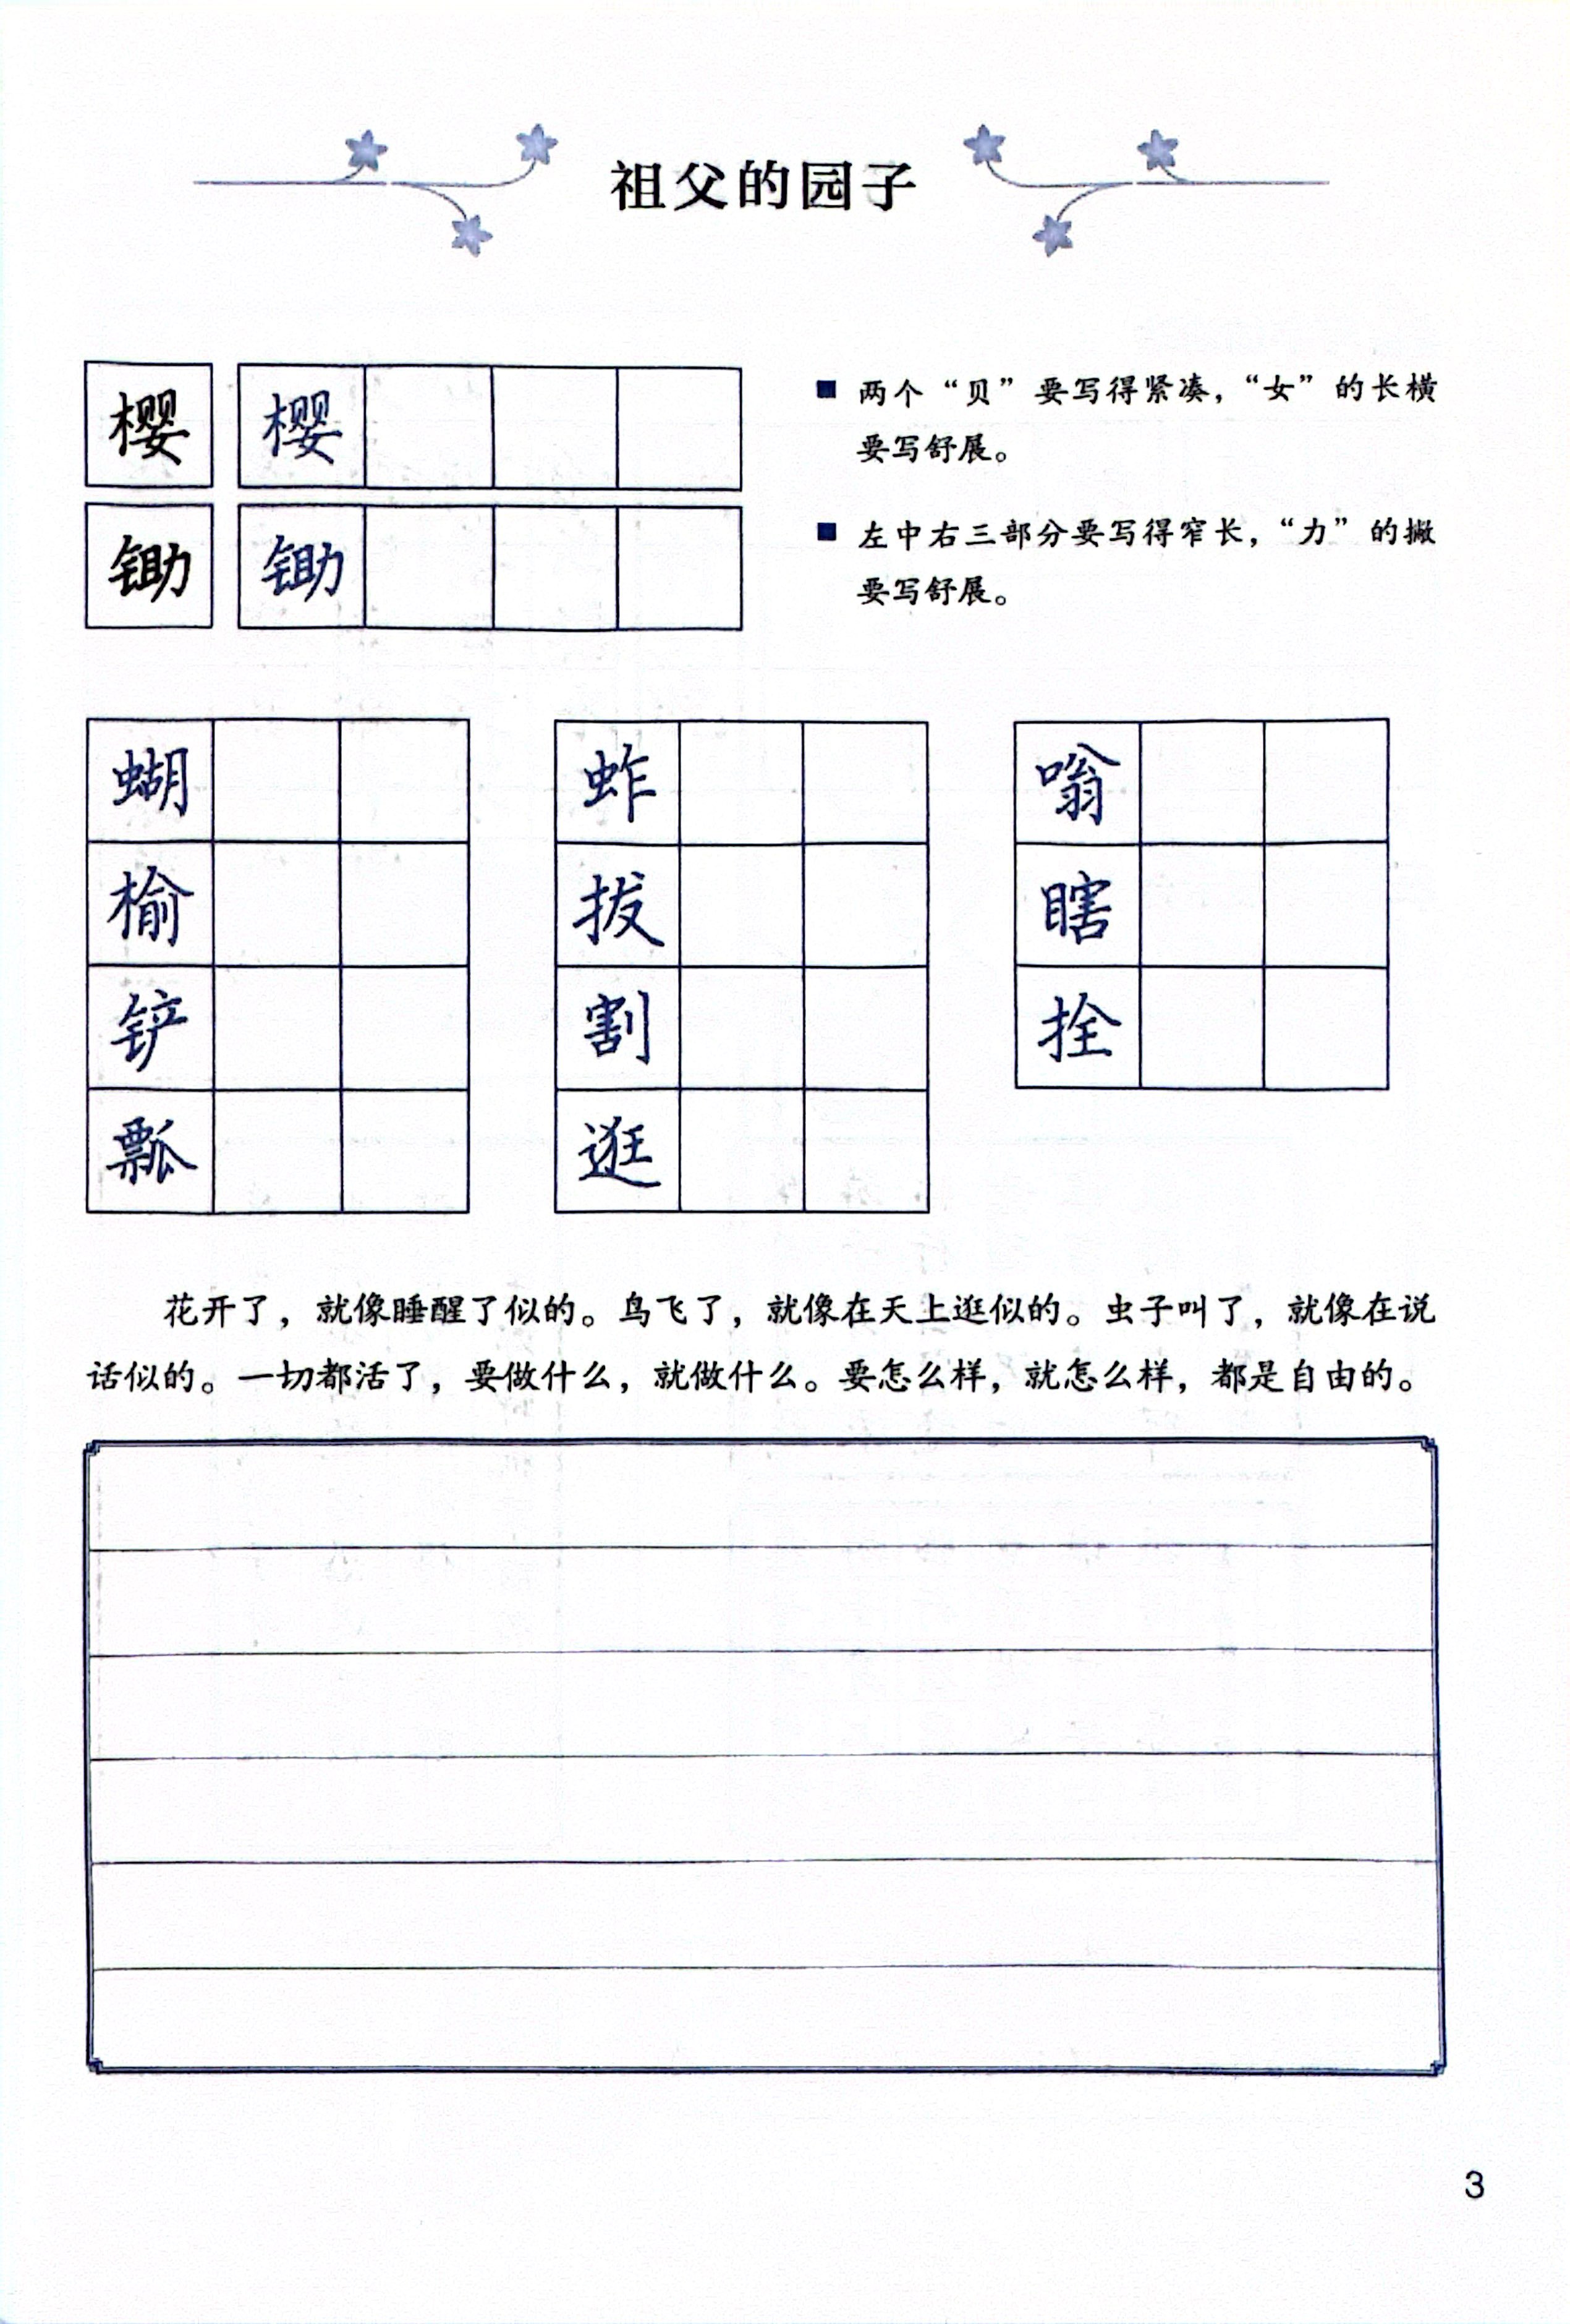 祖父的园子
樱 樱
两个“贝”要写得紧凑，“女”的长横
要写舒展。
锄 锄
左中右三部分要写得窄长，“力”的撇
要写舒展。
蝴 蚱 嗡
榆 拔 瞎
铲 割 拴
瓢 逛
花开了，就像睡醒了似的。鸟飞了，就像在天上逛似的。虫子叫了，就像在说
话似的。一切都活了，要做什么，就做什么。要怎么样，就怎么样，都是自由的。
3